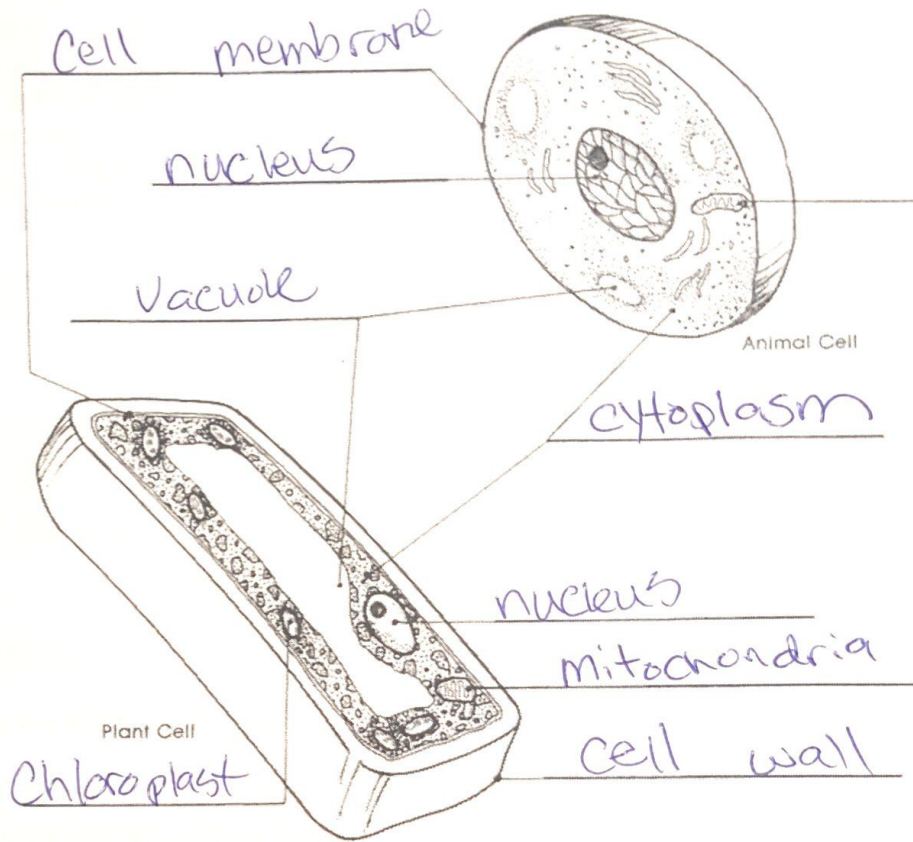 Cell membrane
nucleus
Vacuole
Animal Cell
cytoplasm
nucleus
mitochondria
Plant Cell
cell wall
Chloroplast